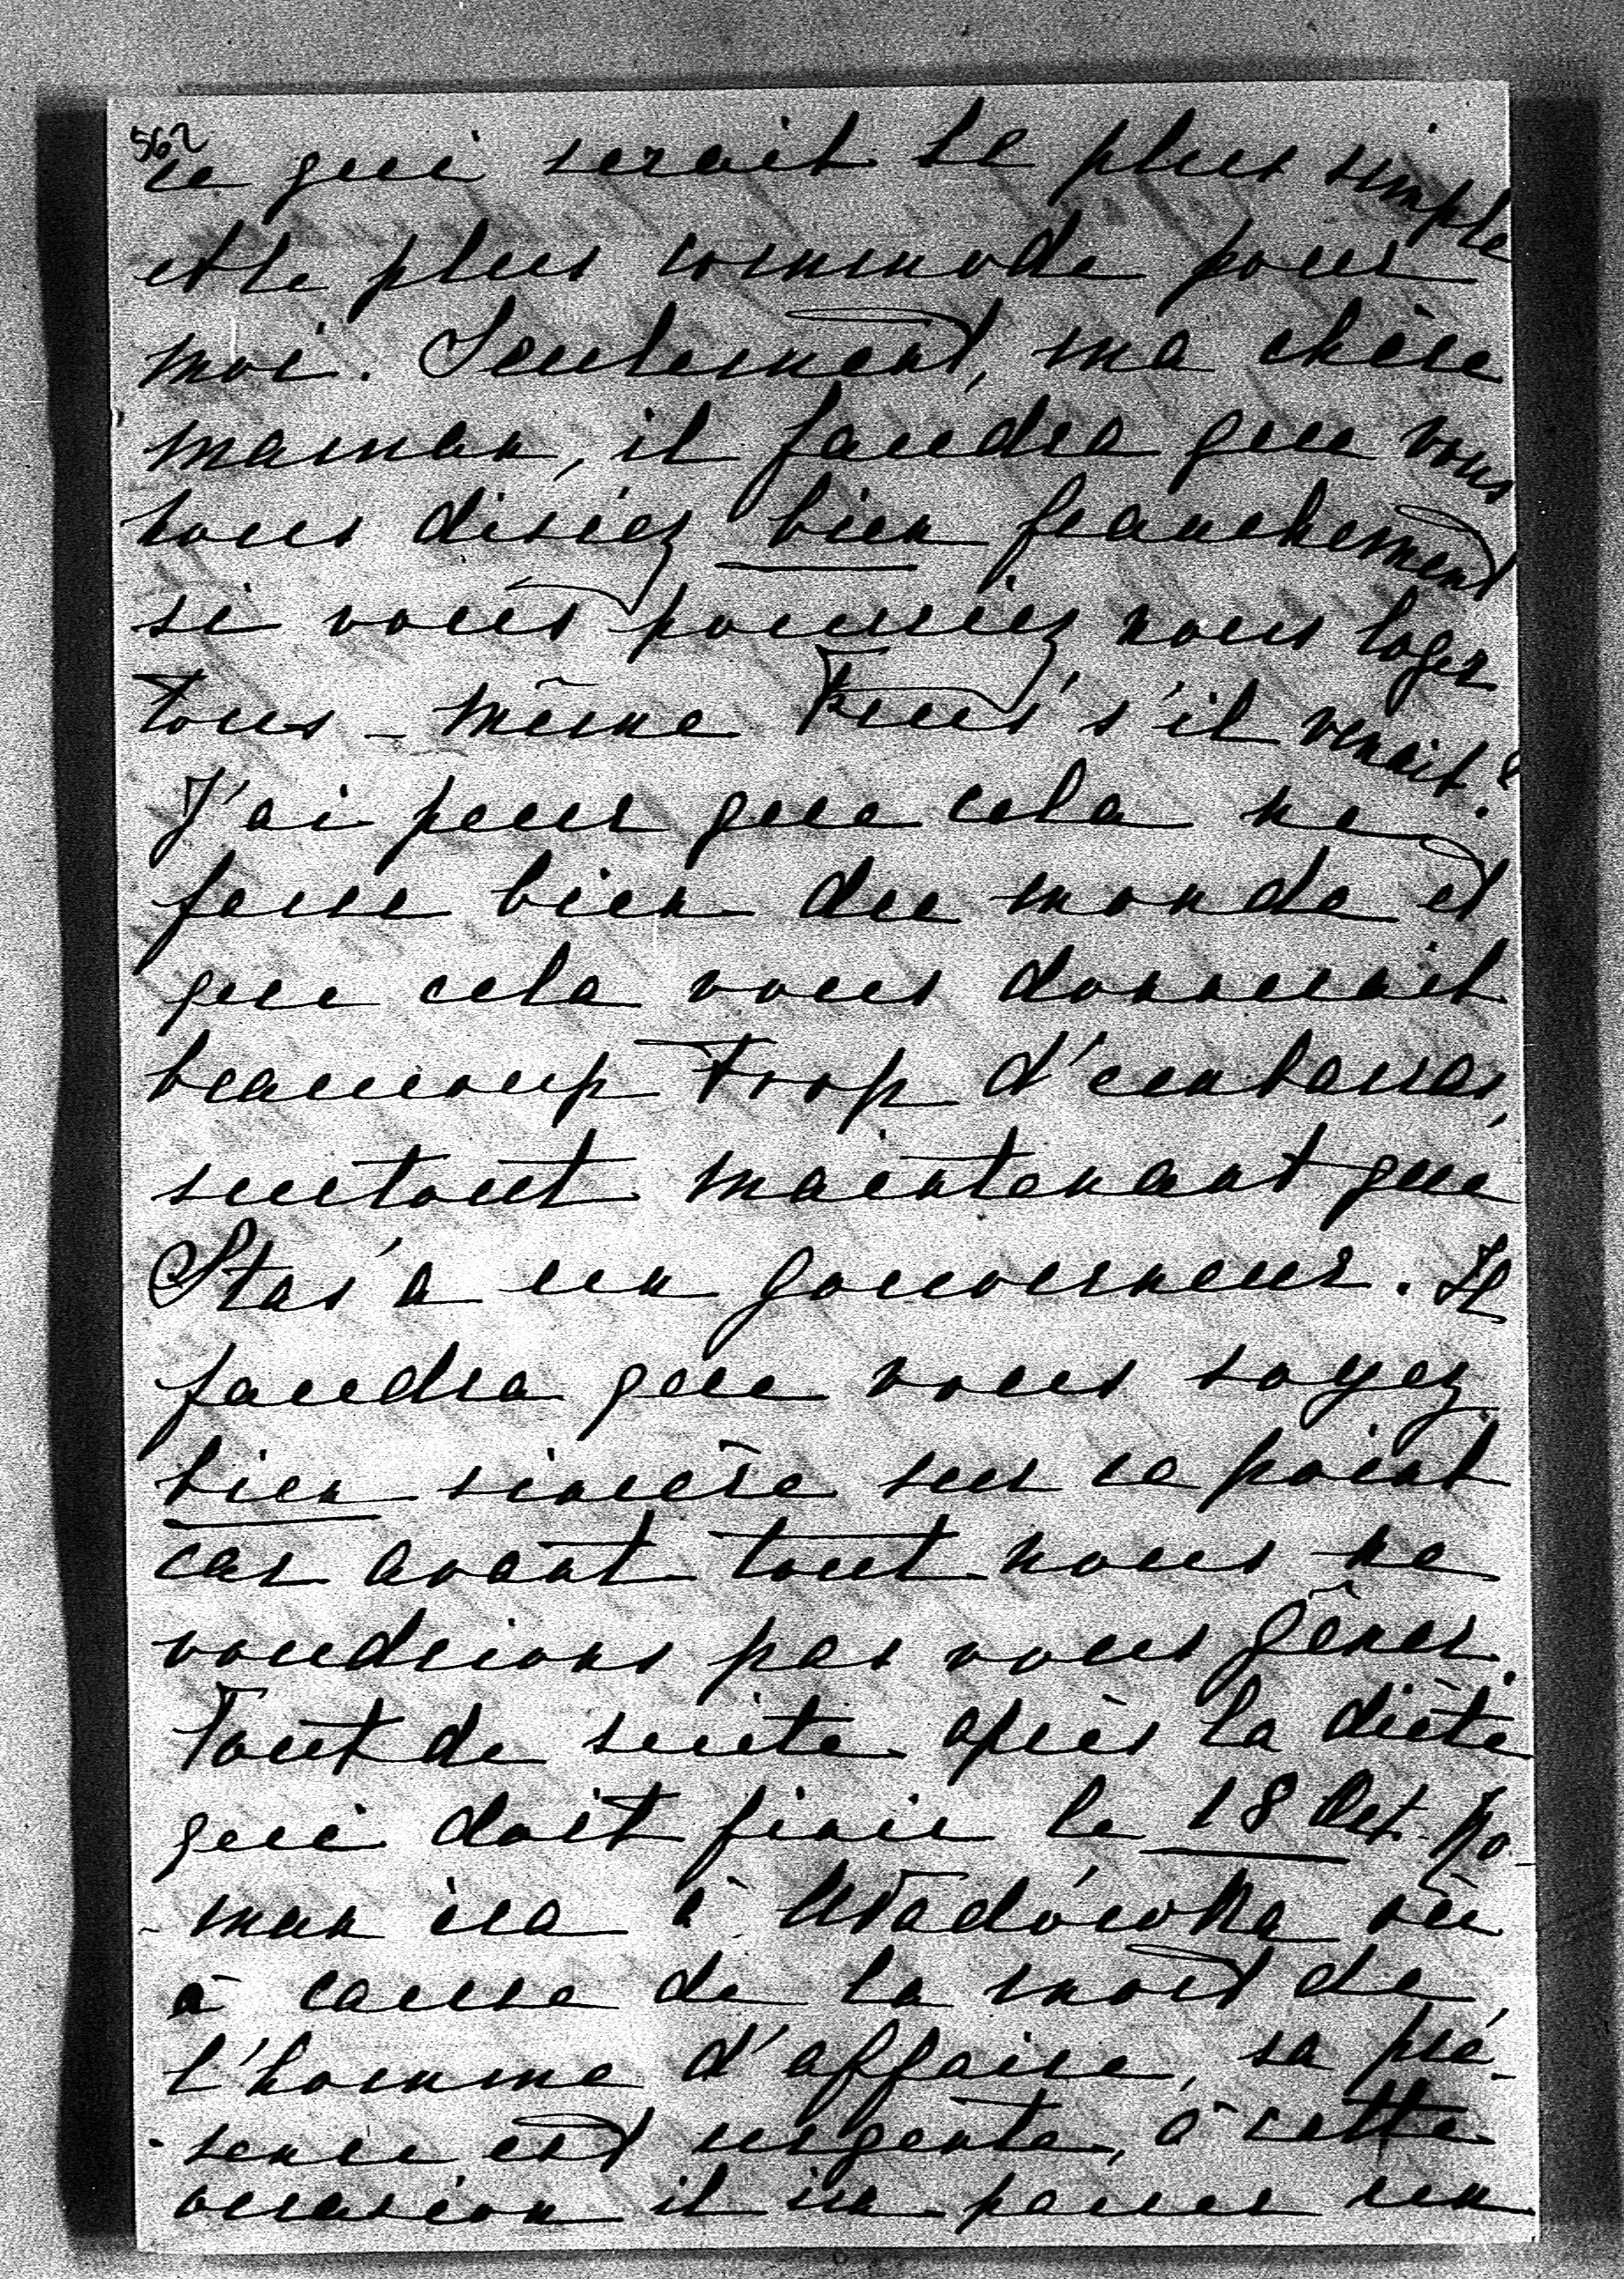 562
ce qui serait le plus simple
et le plus commode pour
moi. Seulement, ma chère
maman, il faudra que vous
nous disiez bien franchement
si vous pourriez nous loger
tous – même s'il venait?
J'ai peur que cela ne
fasse bien du monde et
que cela vous donnerait
beaucoup trop d'embarras,
surtout maintenant que
Staś a un gouverneur. Il
faudra que vous soyez
bien sincère sur ce point
car avant tout nous ne
voudrions pas vous gêner.
Tout de suite après la diète
qui doit finir le 18 Oct. Ro-
-man ira à où
à cause de la mort de
l'homme d'affaire, sa pré-
-sence est urgente, à cette
occasion il ira passer un